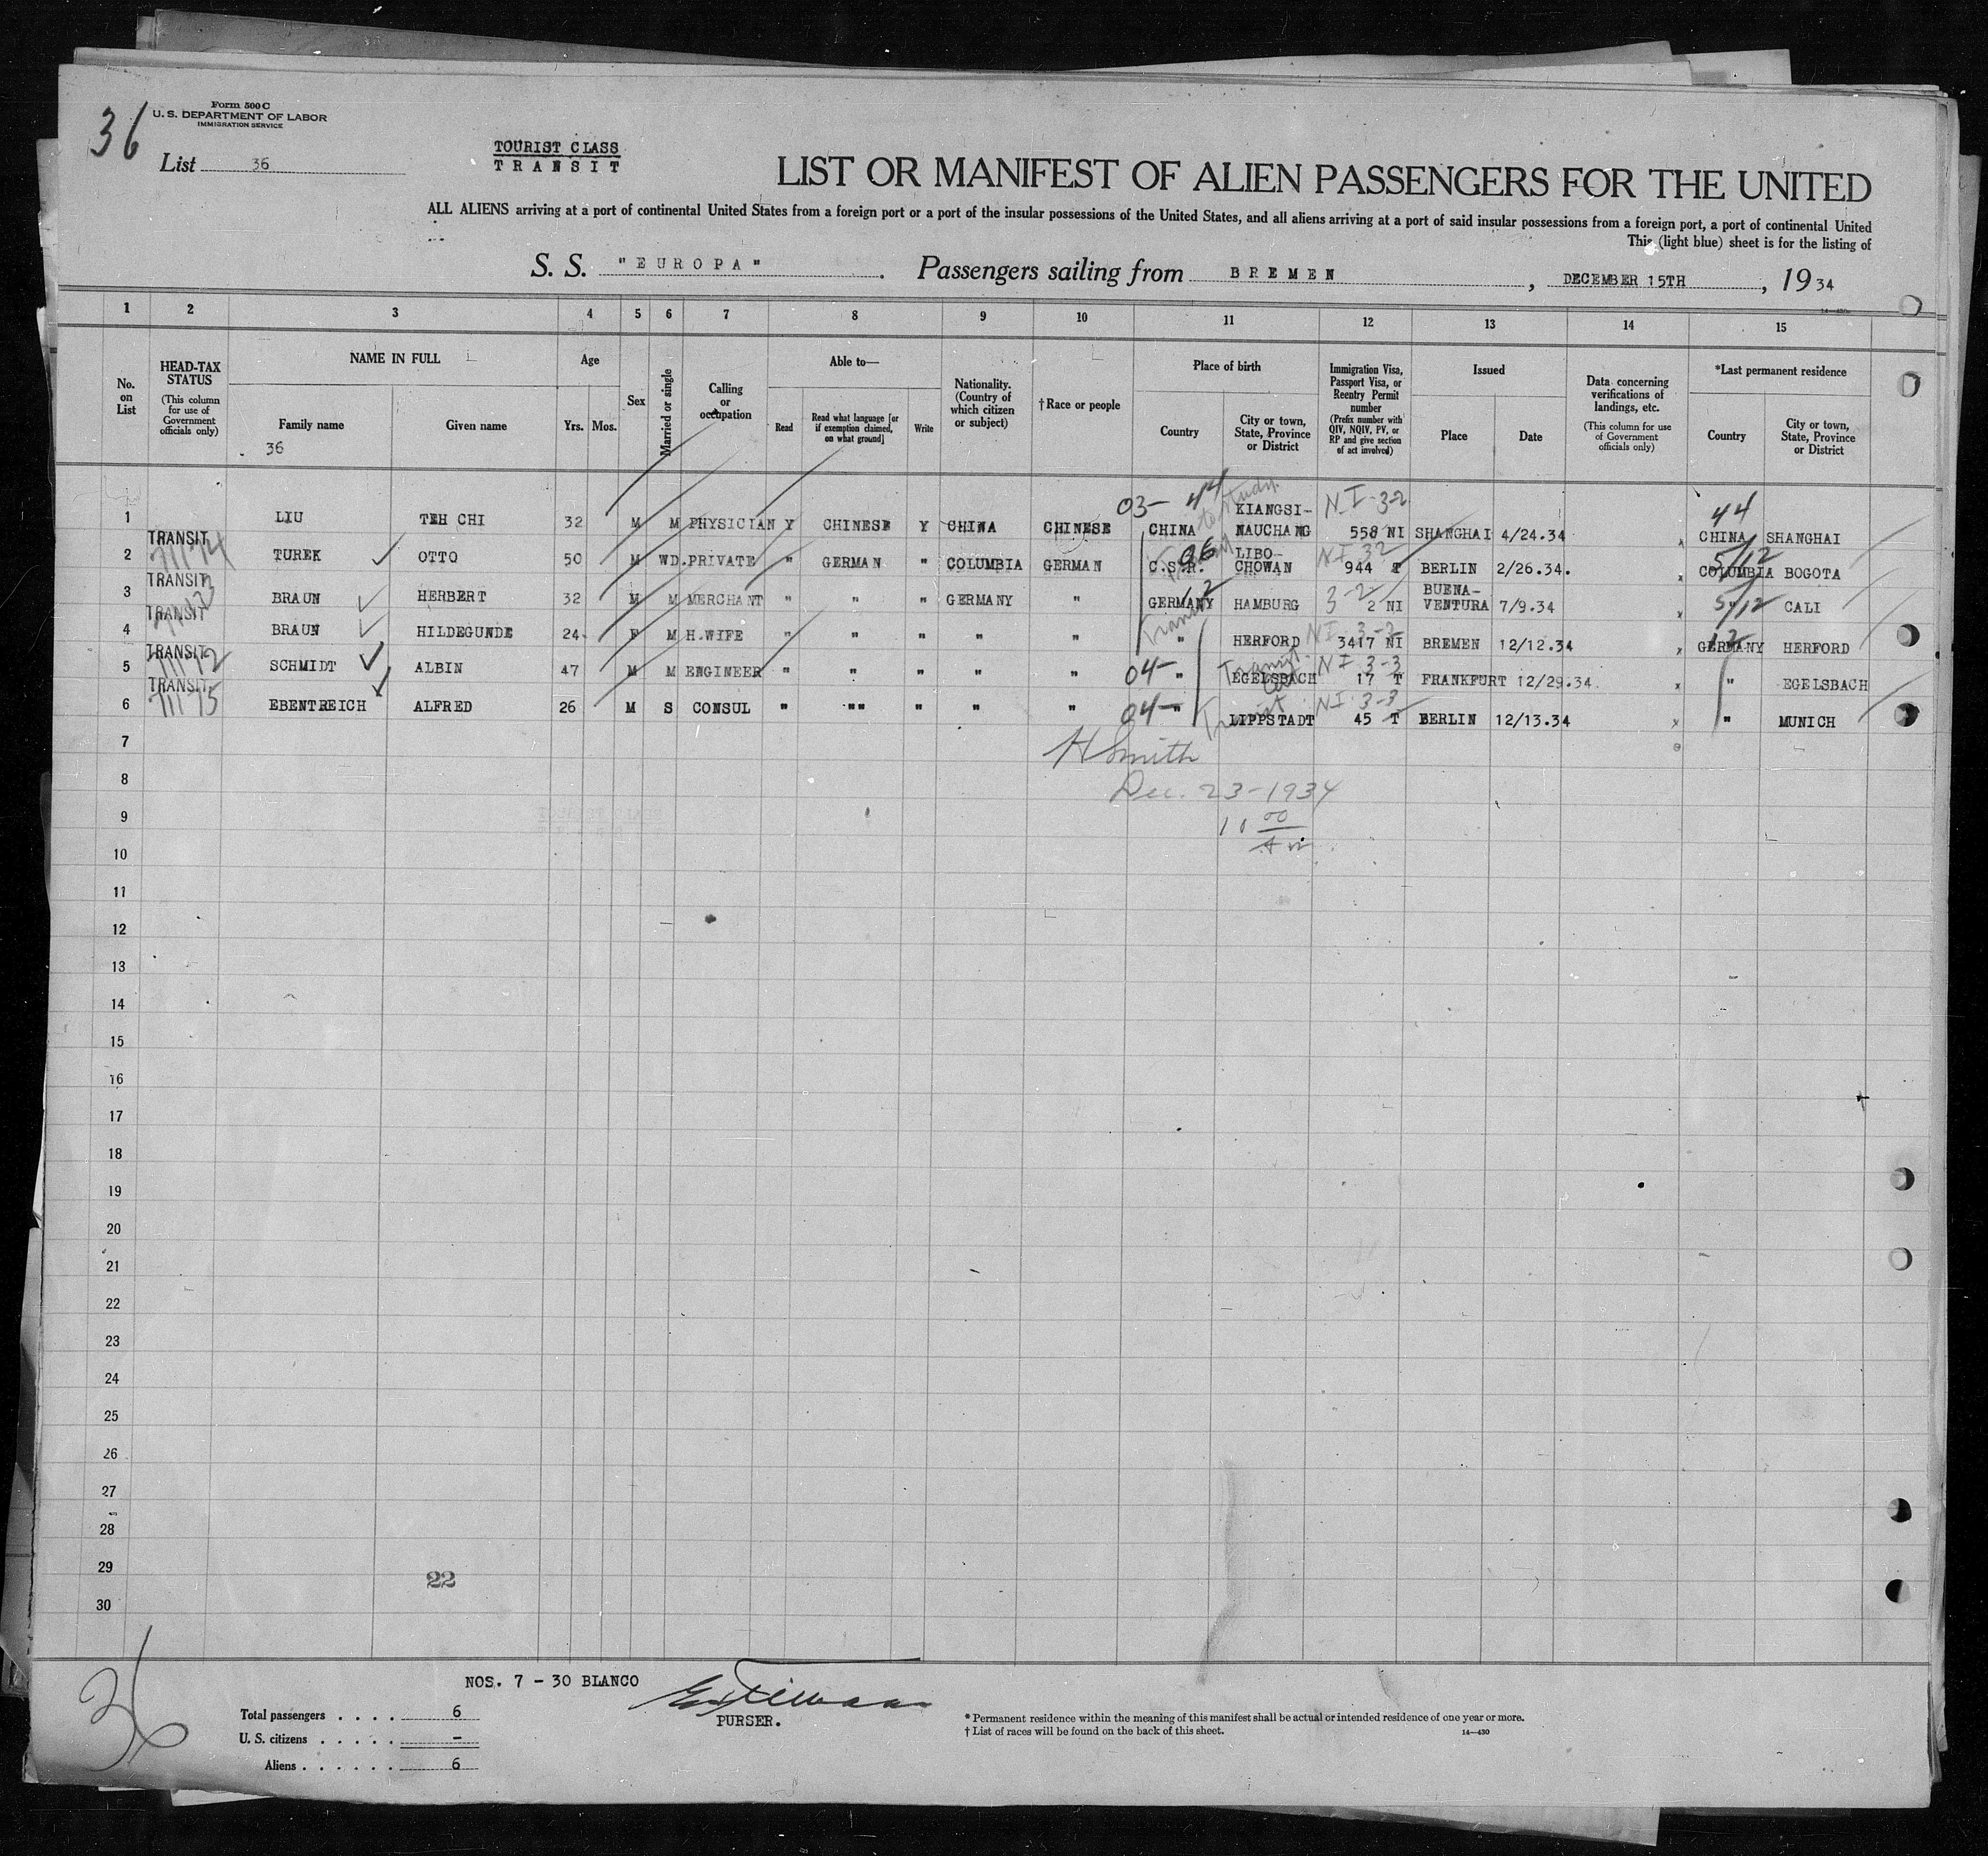 36
Form 500 C
U. S. DEPARTMENT OF LABOR
IMMIGRATION SERVICE
List 36
TOURIST CLASS
TRANSIT
LIST OR MANIFEST OF ALIEN PASSENGERS FOR THE UNITED
ALL ALIENS arriving at a port of continental United States from a foreign port or a port of the insular possessions of the United States, and all aliens arriving at a port of said insular possessions from a foreign port, a port of continental United
This (light blue) sheet is for the listing of
S. S. "EUROPA" . Passengers sailing from BREMEN , DECEMBER 15TH , 19 34
14—430
1 2 3 4 5 6 7 8 9 10 11 12 13 14 15
No. on List
HEAD-TAX STATUS
(This column for use of Government officials only)
NAME IN FULL
Family name
36
Given name
Age
Yrs. Mos.
Sex
Married or single
Calling or occupation
Able to—
Read
Read what language [or if exemption claimed, on what ground]
Write
Nationality. (Country of which citizen or subject)
† Race or people
Place of birth
Country
City or town, State, Province or District
Immigration Visa, Passport Visa, or Reentry Permit number
(Prefix number with QIV, NQIV, PV, or RP and give section of act involved)
Issued
Place
Date
Data concerning verifications of landings, etc.
(This column for use of Government officials only)
*Last permanent residence
Country
City or town, State, Province or District
03- 44 to study. KIANGSI- NI 3-2 44
1 LIU TEH CHI 32 M M PHYSICIAN Y CHINESE Y CHINA CHINESE CHINA NAUCHANG 558 NI SHANGHAI 4/24.34 CHINA SHANGHAI
TRANSIT 06 LIBO- NI 32 5/12
2 TUREK OTTO 50 M WD. PRIVATE " GERMAN " COLUMBIA GERMAN C.S.R. CHOWAN 944 T BERLIN 2/26.34. x COLUMBIA BOGOTA
TRANSIT 12 3-2 BUENA- 5/12
3 BRAUN HERBERT 32 M M MERCHANT " " " GERMANY " GERMANY HAMBURG 2 NI VENTURA 7/9.34 x " CALI
TRANSIT Transit NI 3-2 12
4 BRAUN HILDEGUNDE 24 F M H.WIFE " " " " " " HERFORD 3417 NI BREMEN 12/12.34 x GERMANY HERFORD
TRANSIT 04- Transit NI 3-3
5 SCHMIDT ALBIN 47 M M ENGINEER " " " " " " EGELSBACH 17 T FRANKFURT 12/29.34. x " EGELSBACH
TRANSIT 04- Transit NI 3-3
6 EBENTREICH ALFRED 26 M S CONSUL " "" " " " " LIPPSTADT 45 T BERLIN 12/13.34 x " MUNICH
7
H Smith
8
Dec. 23-1934
9
10 00
AM
10
11
12
13
14
15
16
17
18
19
20
21
22
23
24
25
26
27
28
29
22
30
36
NOS. 7 - 30 BLANCO
PURSER.
Total passengers . . . . 6
U. S. citizens . . . . . -
Aliens . . . . . . 6
* Permanent residence within the meaning of this manifest shall be actual or intended residence of one year or more.
† List of races will be found on the back of this sheet. 14—430